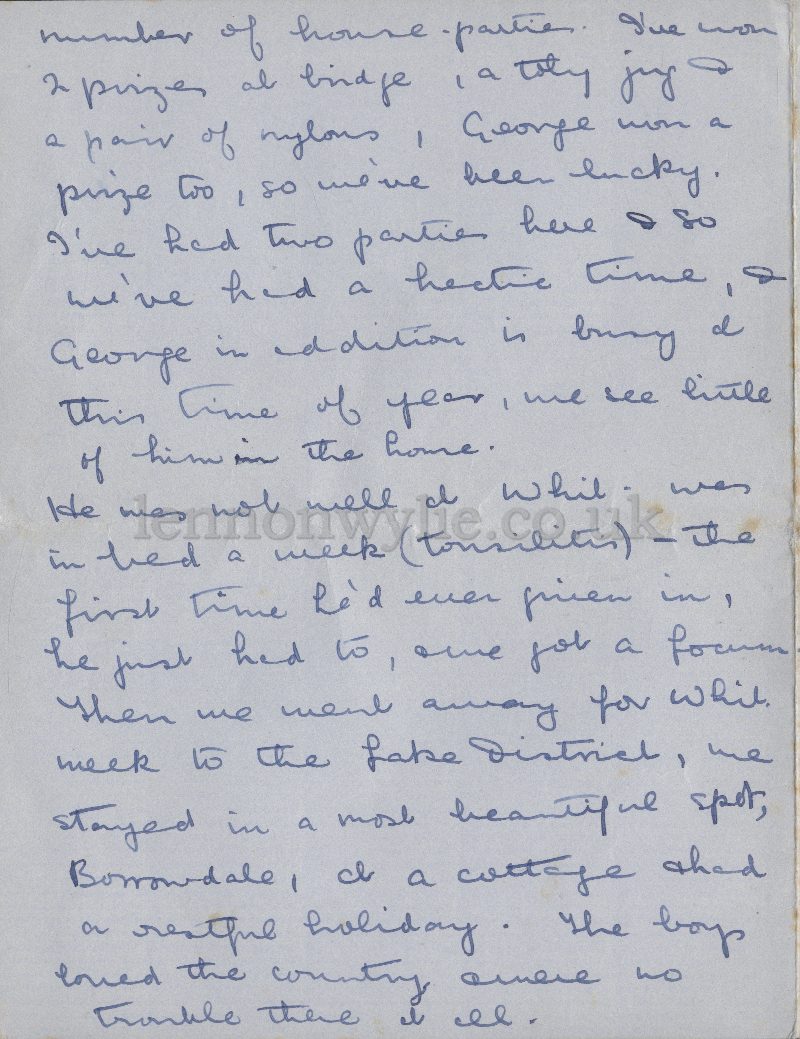 number of house-parties. I've won
2 prizes at bridge, a toby jug &
a pair of nylons, George won a
prize too, so we've been lucky.
I've had two parties here & so
we've had a hectic time, &
George in addition is busy at
this time of year, we see little
of him in the house.
He was not well at Whit - was
in bed a week (tonsilitis) - the
first time he'd ever given in,
he just had to, & we got a locum.
Then we went away for Whit.
week to the Lake District, we
stayed in a most beautiful spot,
Borrowdale, at a cottage & had
a restful holiday. The boys
loved the country, & were no
trouble there at all.
lennonwylie.co.uk